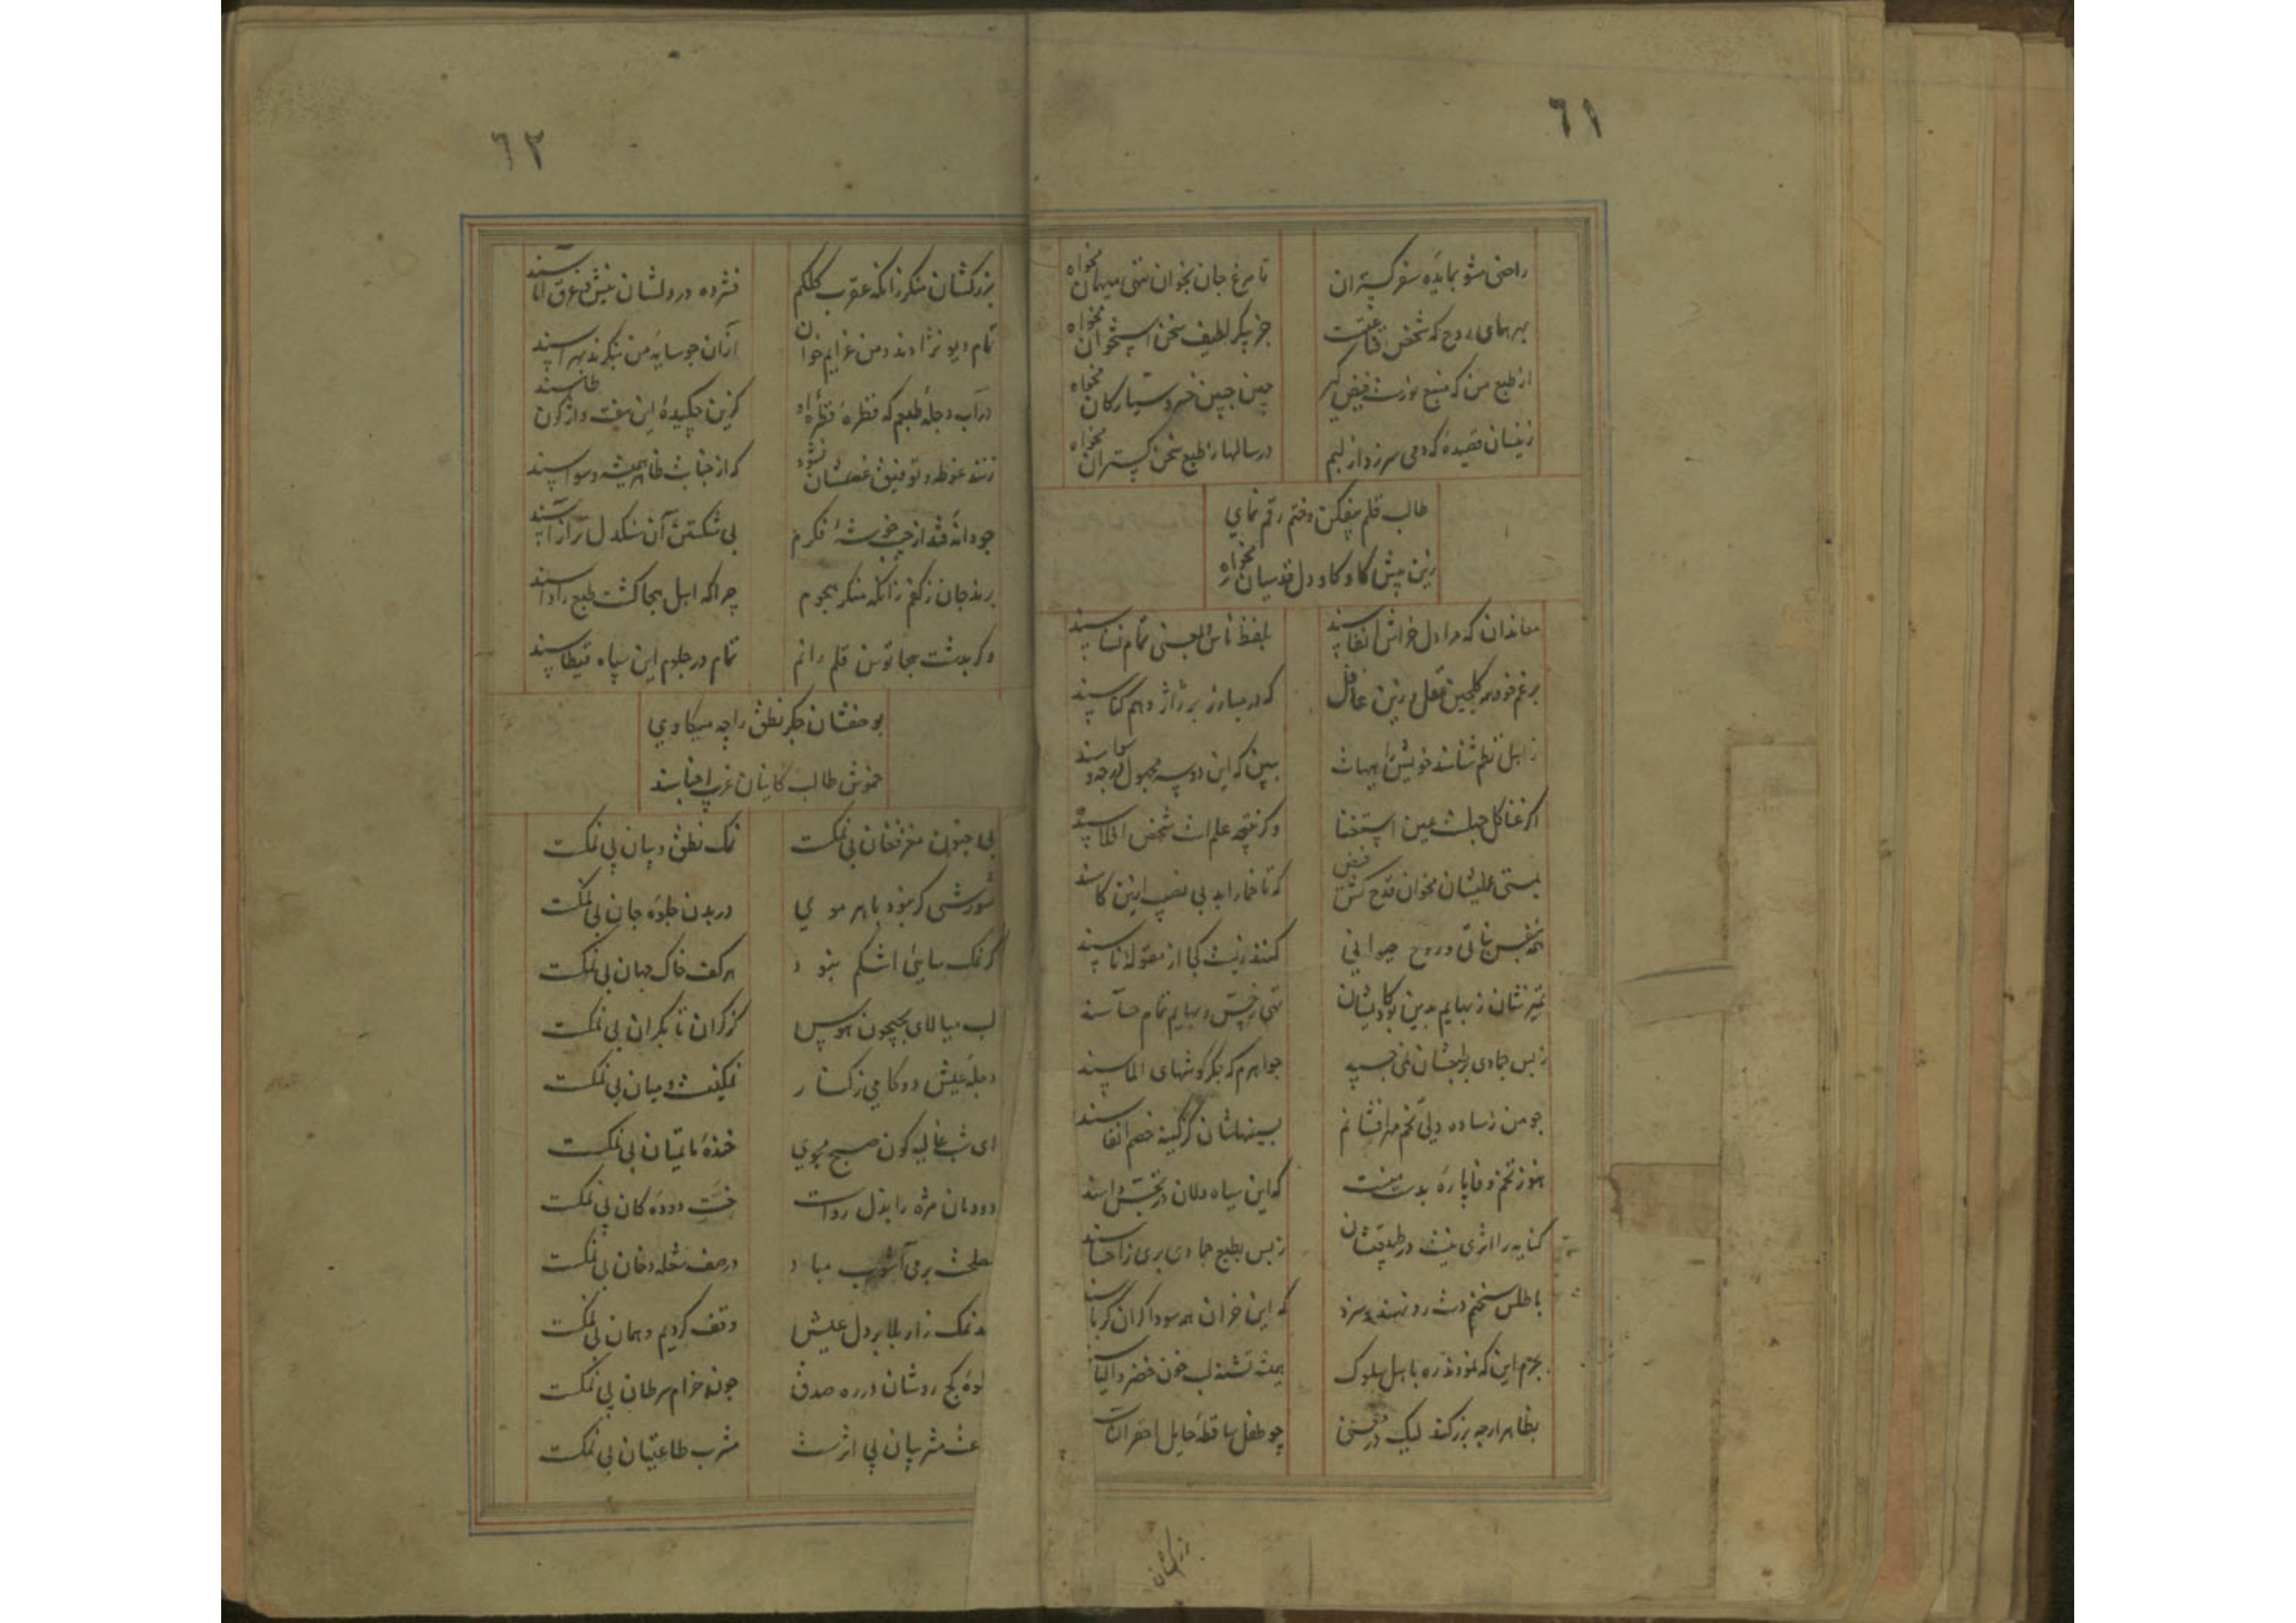 ٦١
راضی مشو بمایدهٔ سفره گستران
تا مرغ جان بخوان سخن میهمان مخواه
بهر همای روح که شخص قناعتست
جز پیکر لطیف سخن استخوان مخواه
از طبع من که منبع نورست فیض گیر
چین جبین خسرو سیارگان مخواه
زینسان قصیدهٔ که دمی سر زد از لبم
در سالها ز طبع سخن گستران مخواه
طالب قلم بیفکن و ختم رقم نمای
زین بیش کاو کاو دل قدسیان مخواه
معاندان که مرا دل خراش انفاسند
بلفظ ناس و بمعنی تمام نسناسند
برغم خود همه گلچین عقل و زین غافل
که در مبارز بر ژاژ وهم کناسند
ز اهل نظم شناسند خویش را هیهات
ببین که این دو سه مجهول
اگر غناکل جهلست عین استغنا
وگر نتیجه علم است شخص افلاسند
بمستی عملیشان مخوان قدح کش فیض
که تا خمار ابد بی نصیب ازین کاسند
همه بنفس نباتی و روح حیوانی
کنند زیست کجا از مقولهٔ ناسند
تمیزشان ز بهایم بدین بود کایشان
تهی ز حس و بهایم تمام حساسند
ز بس جمادی بر طبعشان نمی‌چسپد
جواهرم که جگر گوشهای الماسند
چو من ز ساده دلی تخم مهر افشانم
بسینهاشان کز کینه خصم انفاسند
هنوز تخم وفا پارهٔ بدست منست
که این سیاه دلان در
کنایه را اثری نیست در طبیعتشان
ز بس بطبع جمادی بری ز احساسند
باطلس سخنم دست رد نهند و سزد
که این خران همه سوداگران کرباسند
بجرم این که نمودند ره باهل سلوک
همیشه تشنه لب خون خضر و الیاسند
بظاهر ارچه بزرگند لیک در معنی
چو طفل ساقطه حایل
بزرگشان
٦٢
بزرگشان منگر زانکه عقرب کلکم
فشرده در دلشان نیش و غرق آماسند
تمام دیو نژادند و من عزایم خوان
از آن چو سایهٔ من بنگرند بهراسند
در آب دجلهٔ طبعم که قطرهٔ قطرهٔ او
گزین چکیدهٔ این هفت واژگون طاسند
زنند غوطه و توفیق غسلشان نشود
که از جنابت ظاهر همیشه وسواسند
چو دانهٔ فتد از جیب خوشهٔ فکرم
پی شکستن آن سنگدل‌تر از آسند
برند جان ز کفم زانکه منکر هجوم
چرا که اهل هجا کشت طبع را داسند
وگر بدشت هجا توسن قلم رانم
تمام در جلوم این سپاه قیطاسند
بوصفشان جگر نطق را چه میکاوی
خموش طالب کاینان غریب اجناسند
بی جنون مغز فغان بی نمکست
نمک نطق و بیان بی نمکست
شورشی گر نبود با هر موی
در بدن جلوهٔ جان بی نمکست
گر نمک سایی اشکم نبود
هر کف خاک جهان بی نمکست
لب میالای بجیحون هوس
کز کران تا بکران بی نمکست
دجلهٔ عیش دو گامی ز کنار
نمکینست و میان بی نمکست
ای شب غالیه گون صبح مجوی
خندهٔ ماتمیان بی نمکست
دودمان مژه را بذل رواست
خست دودهٔ کان بی نمکست
درصف شعله دخان بی نمکست
نمک زار بلا بر دل عیش
وقف کردیم و همان بی نمکست
کج روشان در ره صدق
چون خرام سرطان بی نمکست
مشربیان بی اثرست
مشرب طاعتیان بی نمکست